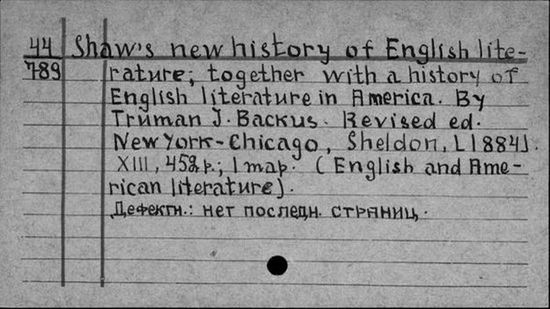 44 Shaw's new history of English lite-
789 rature; together with a history of
English literature in America. By
Truman J. Backus. Revised ed.
New York-Chicago, Sheldon, [1884].
XIII, 452 p.; 1 map. (English and Ame-
rican literature).
Дефектн.: нет последн. страниц.